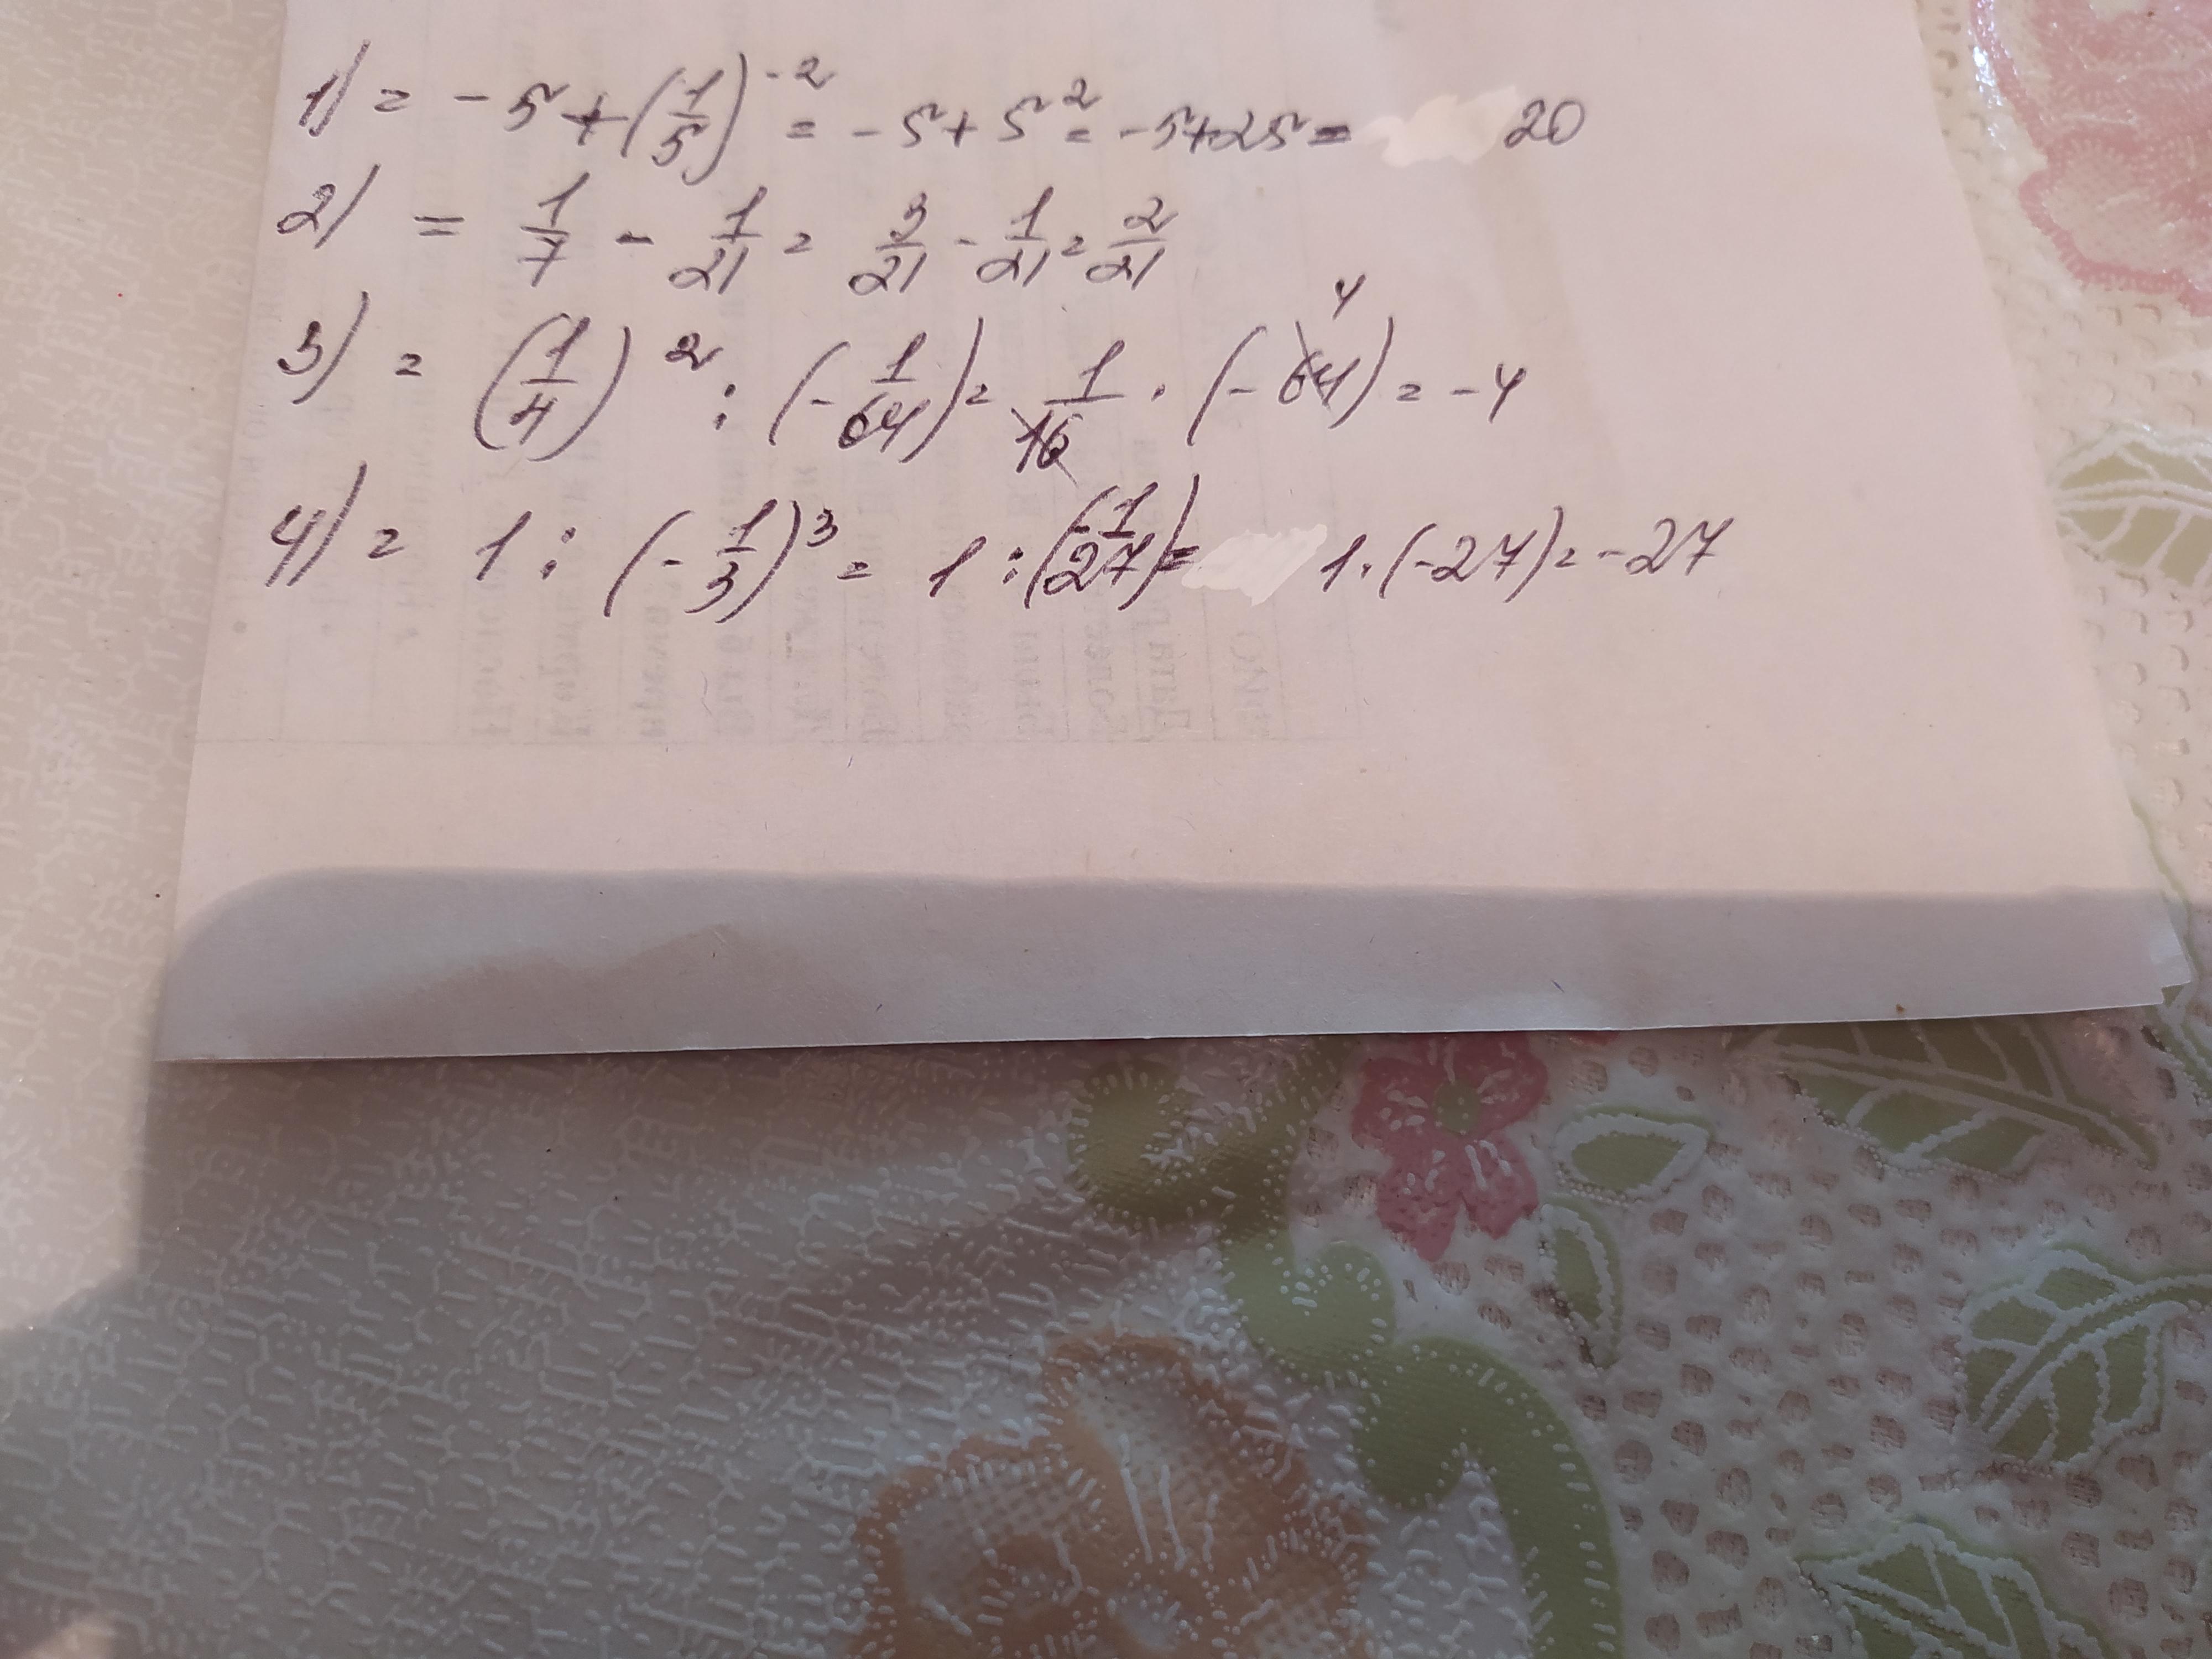 1) = -5 + (1/5)^-2 = -5 + 5^2 = -5+25 = 20
2) = 1/7 - 1/21 = 3/21 - 1/21 = 2/21
3) = (1/4)^2 : (-1/64) = 1/16 · (-64) 4 = -4
4) = 1 : (-1/3)^3 = 1 : (-1/27) = 1 · (-27) = -27